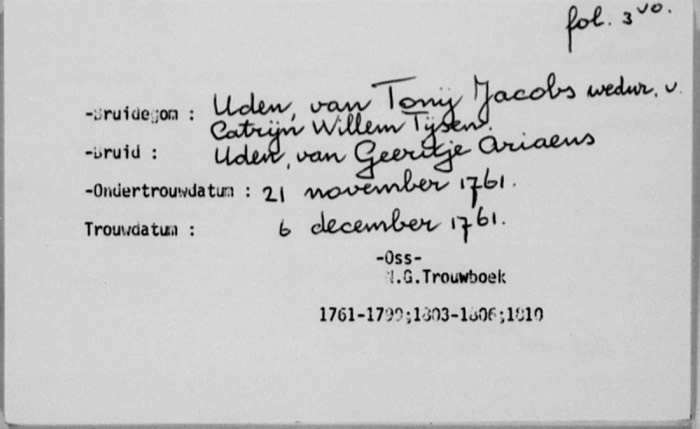 fol. 3 vo.
-Bruidegom : Uden, van Tonij Jacobs wedur. v.
Catrijn Willem Tijsen.
-Bruid : Uden, van Geeritje Ariaens
-Ondertrouwdatum : 21 november 1761.
Trouwdatum : 6 december 1761.
-Oss-
N.G.Trouwboek
1761-1799;1803-1806;1810